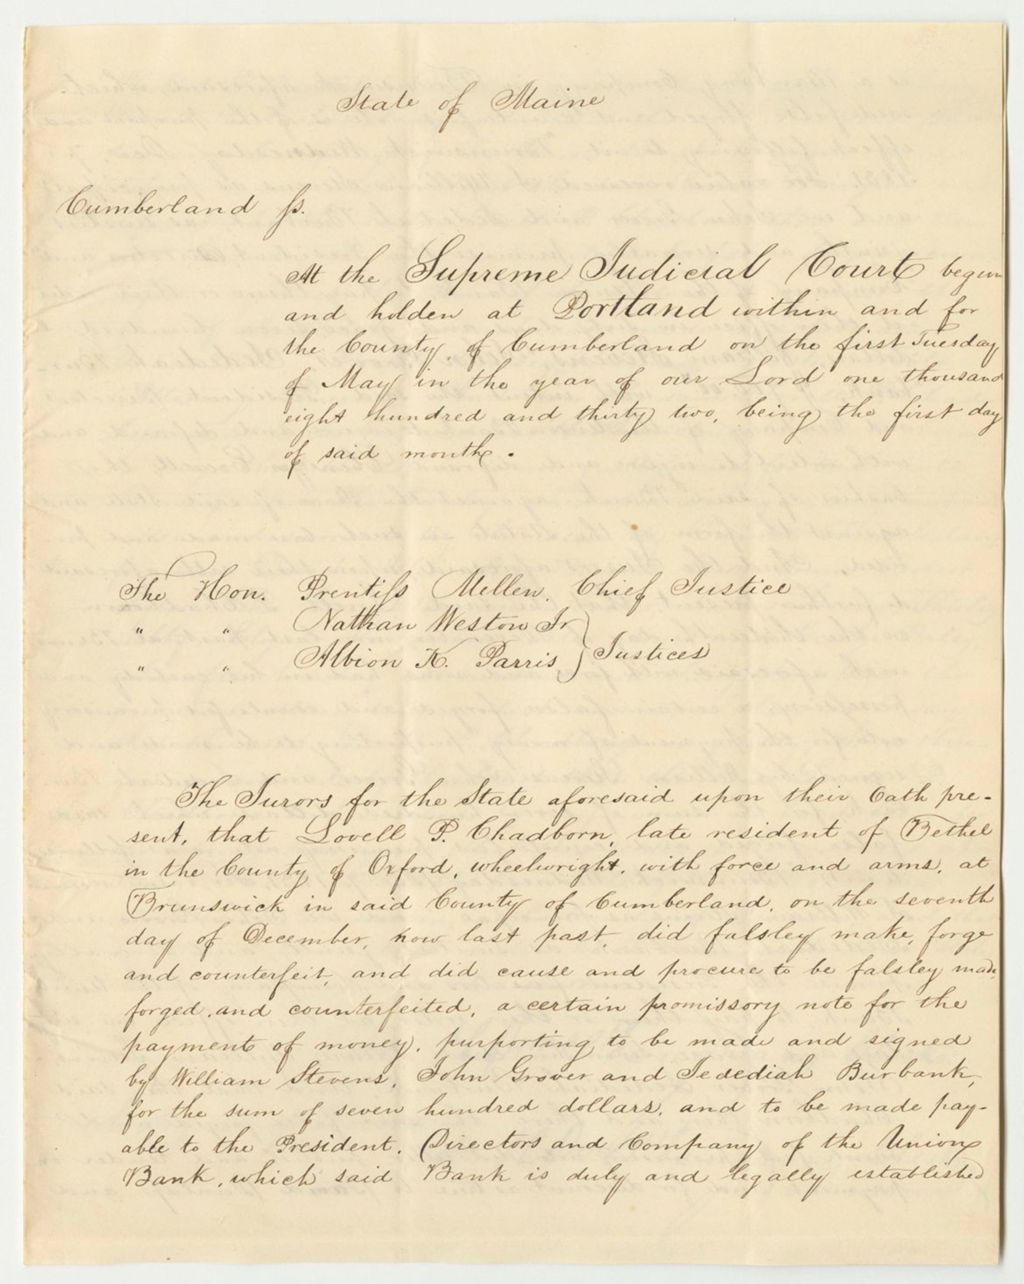 State of Maine
Cumberland ss.
At the Supreme Judicial Court begun
and holden at Portland within and for
the County of Cumberland on the first Tuesday
of May in the year of our Lord one thousand
eight hundred and thirty two, being the first day
of said month.
The Hon. Prentiss Mellen. Chief Justice
" " Nathan Weston Jr
" " Albion K. Parris } Justices
The Jurors for the State aforesaid upon their Oath pre-
sent, that Lovell P. Chadborn, late resident of Bethel
in the County of Oxford, wheelwright, with force and arms, at
Brunswick in said County of Cumberland, on the seventh
day of December, now last past, did falsley make, forge
and counterfeit, and did cause and procure to be falsley made
forged, and counterfeited, a certain promissory note for the
payment of money, purporting to be made and signed
by William Stevens, John Grover and Jedediah Burbank,
for the sum of seven hundred dollars, and to be made pay-
able to the President, Directors and Company of the Union
Bank, which said Bank is duly and legally established